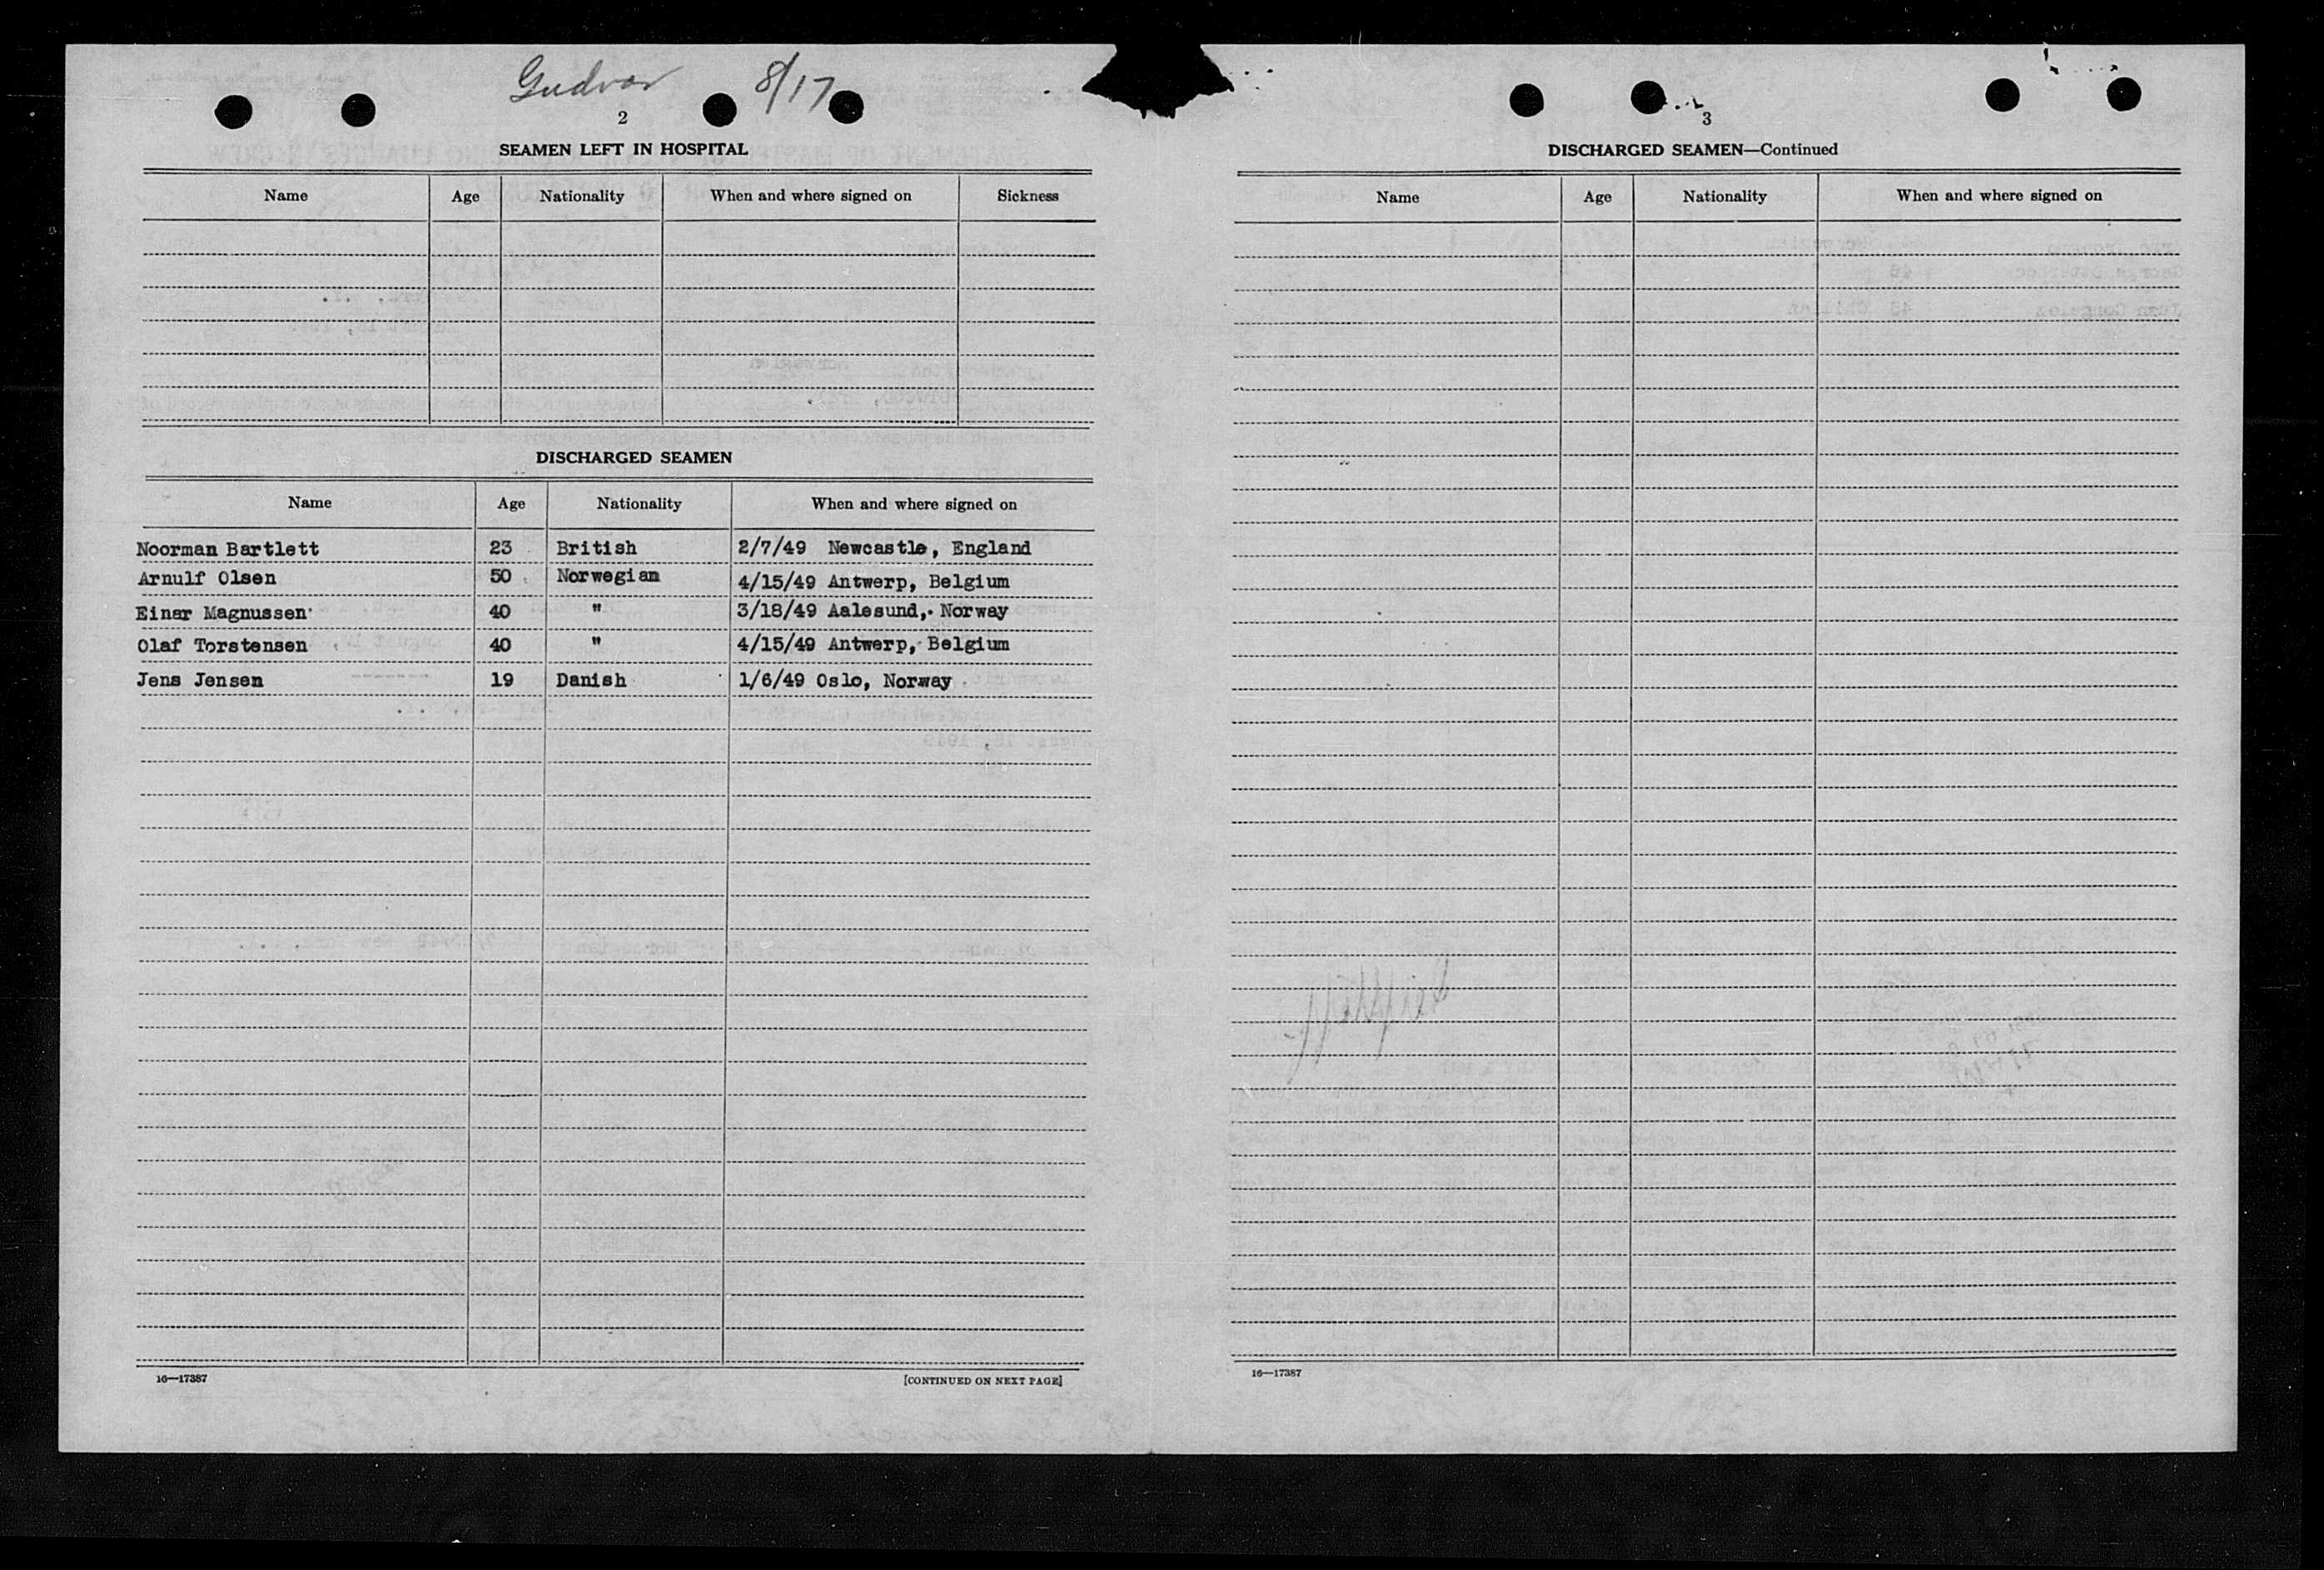 Gudvor 8/17
2
SEAMEN LEFT IN HOSPITAL
Name Age Nationality When and where signed on Sickness
DISCHARGED SEAMEN
Name Age Nationality When and where signed on
Noorman Bartlett 23 British 2/7/49 Newcastle, England
Arnulf Olsen 50 Norwegian 4/15/49 Antwerp, Belgium
Einar Magnussen 40 " 3/18/49 Aalesund, Norway
Olaf Torstensen 40 " 4/15/49 Antwerp, Belgium
Jens Jensen 19 Danish 1/6/49 Oslo, Norway
16—17387 [CONTINUED ON NEXT PAGE]
3
DISCHARGED SEAMEN—Continued
Name Age Nationality When and where signed on
16—17387